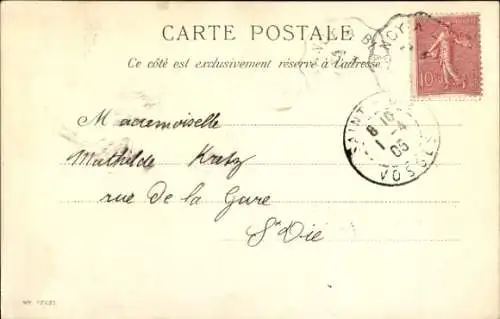 CARTE POSTALE
Ce côté est exclusivement réservé à l'adresse
10
8 10
1 -4
05
VOSGES
Mademoiselle
Mathilde Kretz
rue de la Gare
St Dié